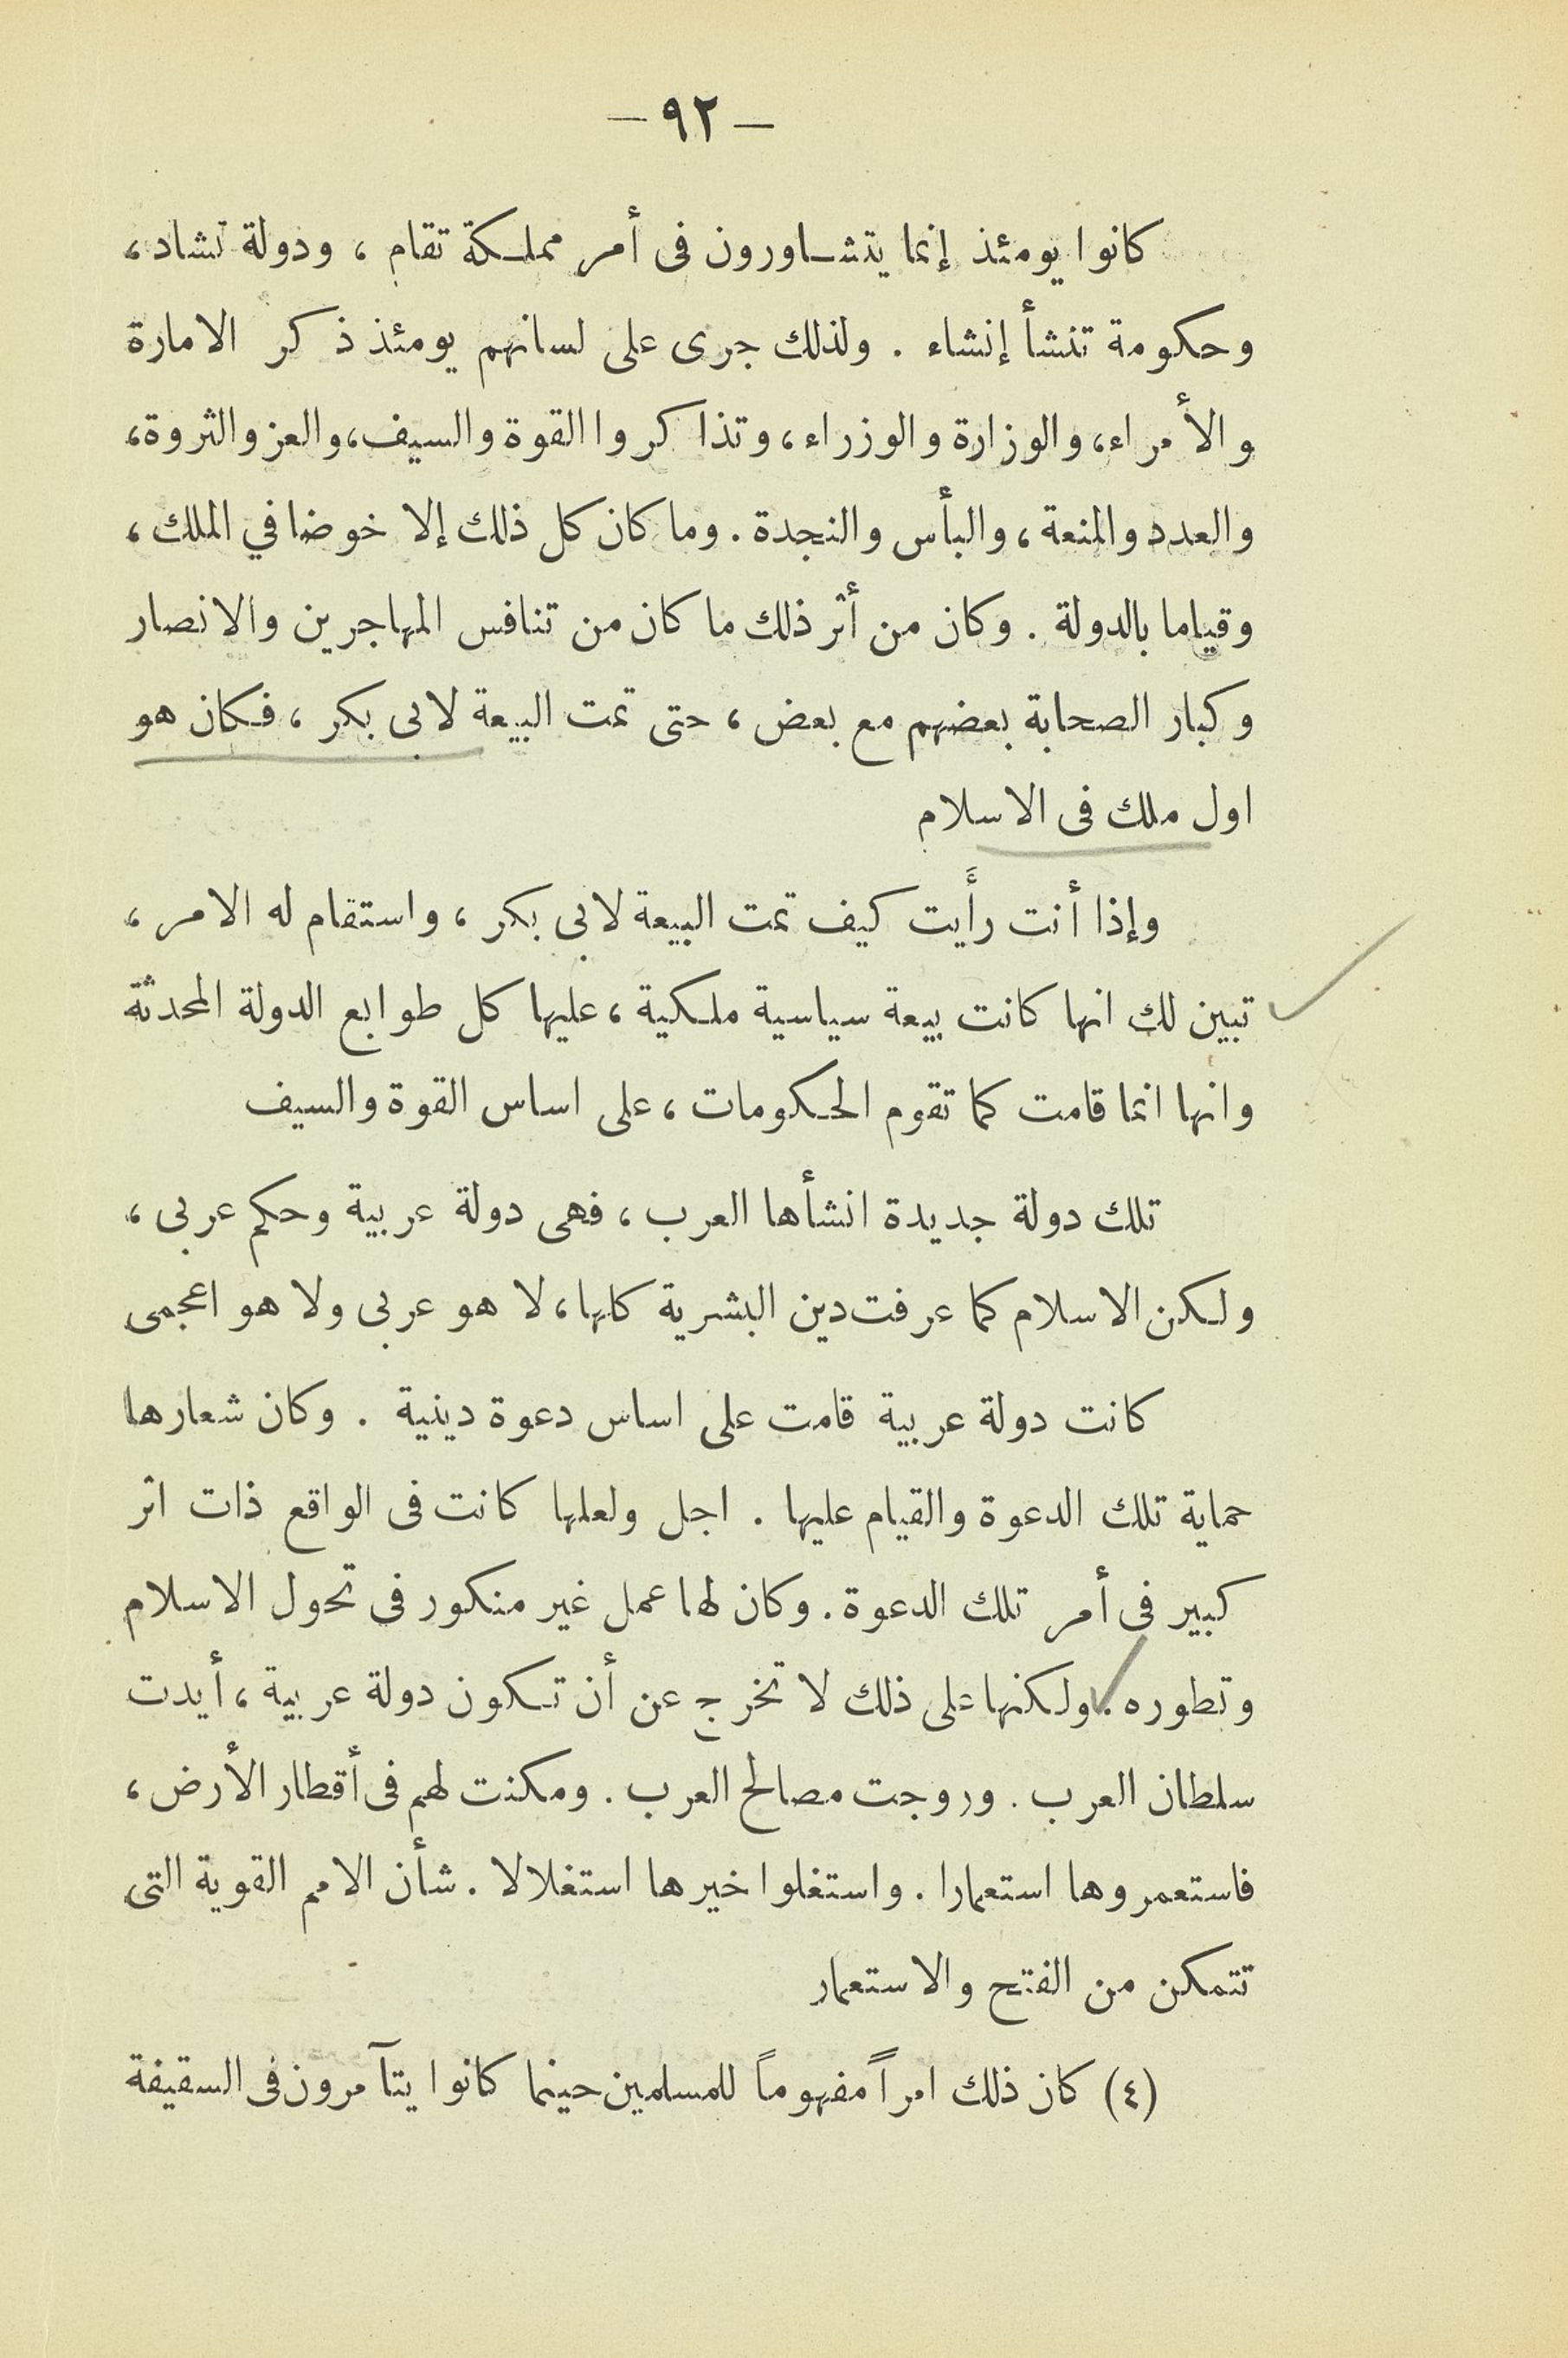 — ٩٢ —
كانوا يومئذ إنما يتشاورون فى أمر مملكة تقام ، ودولة تشاد ،
وحكومة تنشأ إنشاء . ولذلك جرى على لسانهم يومئذ ذكر الامارة
والأمراء، والوزارة والوزراء، وتذاكروا القوة والسيف، والعز والثروة،
والعدد والمنعة ، والبأس والنجدة . وما كان كل ذلك إلا خوضا في الملك ،
وقياما بالدولة . وكان من أثر ذلك ما كان من تنافس المهاجرين والانصار
وكبار الصحابة بعضهم مع بعض ، حتى تمت البيعة لابى بكر ، فكان هو
اول ملك فى الاسلام
وإذا أنت رأَيت كيف تمت البيعة لابى بكر ، واستقام له الامر ،
تبين لك انها كانت بيعة سياسية ملكية ، عليها كل طوابع الدولة المحدثة
وانها انما قامت كما تقوم الحكومات ، على اساس القوة والسيف
تلك دولة جديدة انشأها العرب ، فهى دولة عربية وحكم عربى ،
ولكن الاسلام كما عرفت دين البشرية كلها ، لا هو عربى ولا هو اعجمى
كانت دولة عربية قامت على اساس دعوة دينية . وكان شعارها
حماية تلك الدعوة والقيام عليها . اجل ولعلها كانت فى الواقع ذات اثر
كبير فى أمر تلك الدعوة . وكان لها عمل غير منكور فى تحول الاسلام
وتطوره . ولكنها على ذلك لا تخرج عن أن تكون دولة عربية ، أيدت
سلطان العرب . وروجت مصالح العرب . ومكنت لهم فى أقطار الأرض ،
فاستعمروها استعمارا . واستغلوا خيرها استغلالا . شأن الامم القوية التى
تتمكن من الفتح والاستعمار
(٤) كان ذلك امراً مفهوماً للمسلمين حينما كانوا يتآمرون فى السقيفة